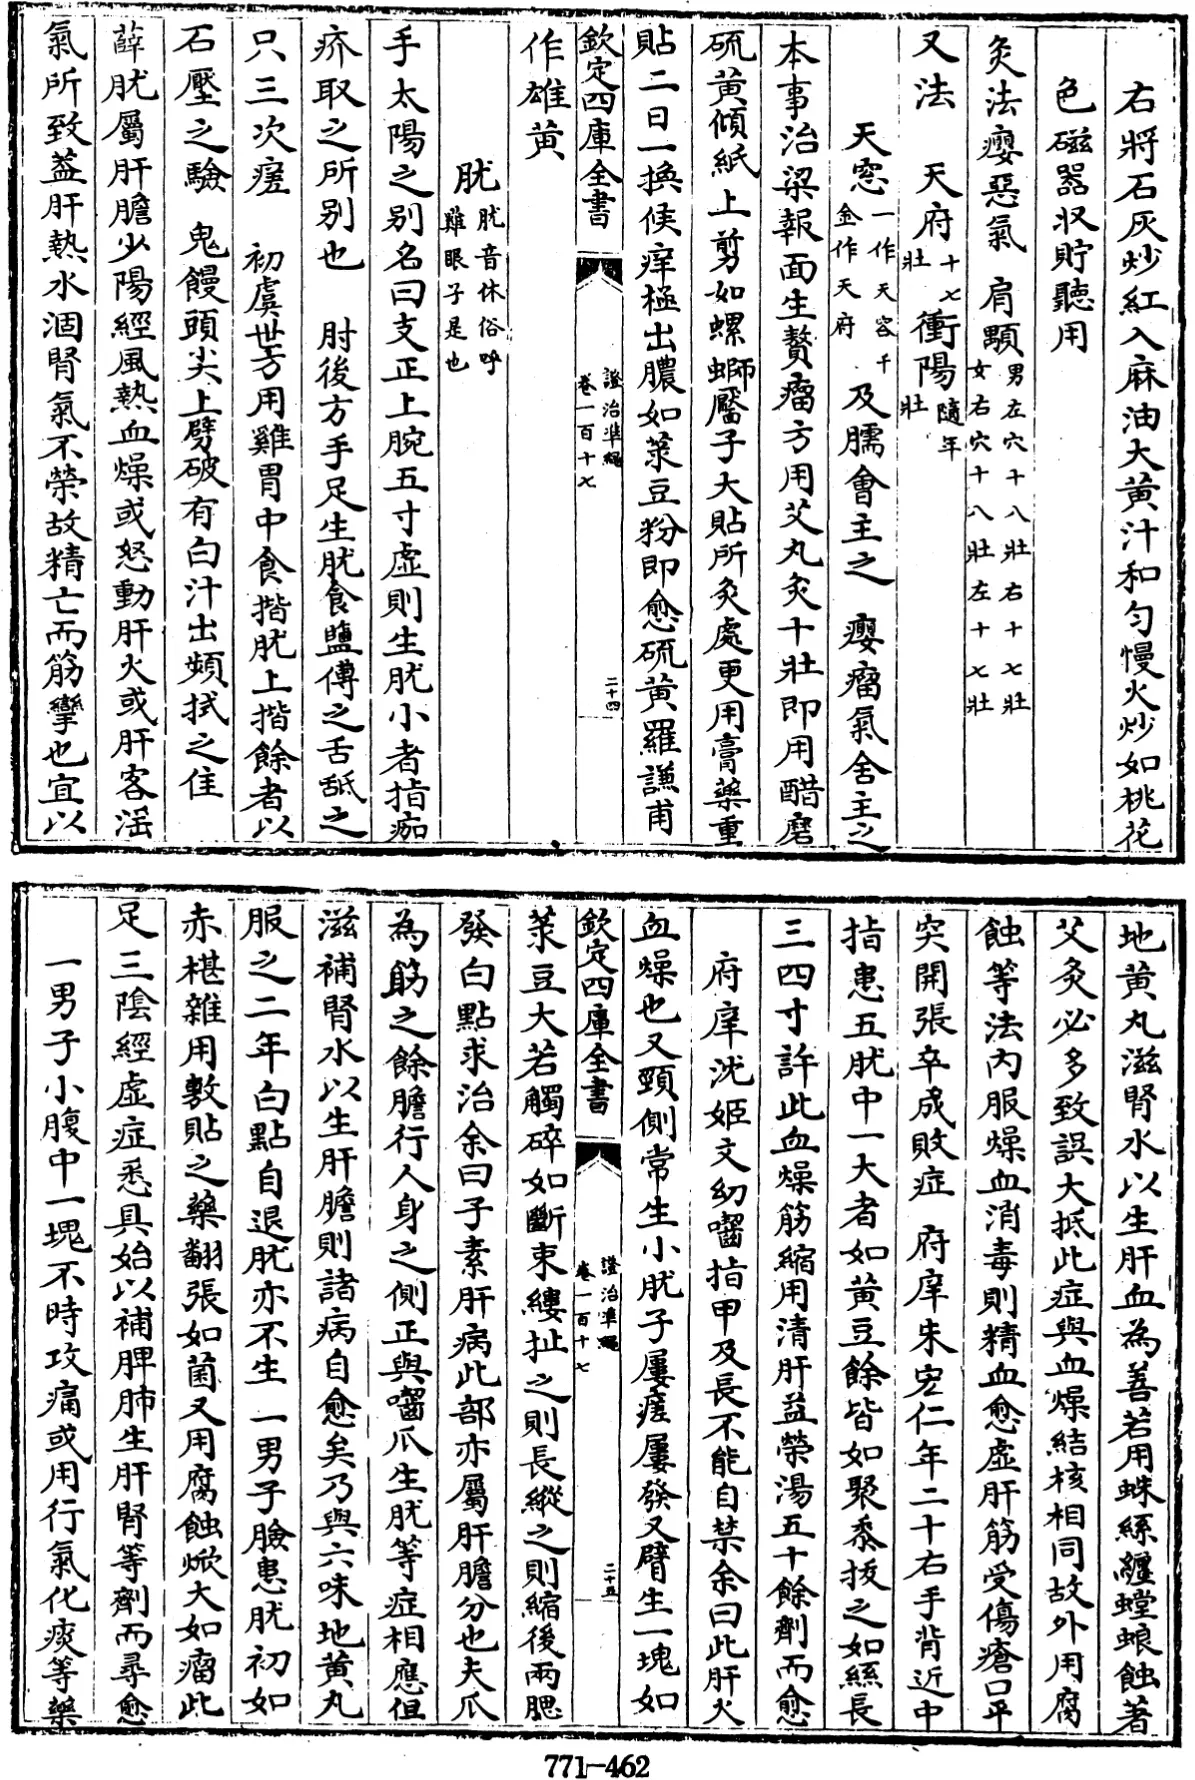 右將石灰炒紅入麻油大黄汁和匀慢火炒如桃花
色磁器収貯聽用
灸法癭惡氣　肩顒男左穴十八壯右十七壯女右穴十八壯左十七壯
又法　天府十七壯衝陽隨年壯
天窓一作天容千金作天府　及臑會主之　癭瘤氣舍主之
本事治梁報面生贅瘤方用艾丸灸十壯即用醋磨
硫黄傾紙上剪如螺螄靨子大貼所灸處更用膏藥重
貼二日一換候痒極出膿如菉豆粉即愈硫黄羅謙甫
欽定四庫全書　證治準繩　卷一百十七　二十四
作雄黄
肬肬音休俗呼雞眼子是也
手太陽之别名曰支正上腕五寸虚則生肬小者指痂
疥取之所别也　肘後方手足生肬食鹽傅之舌舐之
只三次瘥　初虞世方用雞胃中食揩肬上揩餘者以
石壓之驗　鬼饅頭尖上劈破有白汁出頻拭之佳
薛肬屬肝膽少陽經風熱血燥或怒動肝火或肝客淫
氣所致葢肝熱水涸腎氣不榮故精亡而筋攣也宜以
地黄丸滋腎水以生肝血為善若用蛛絲纏螳蜋蝕著
艾灸必多致誤大抵此症與血燥結核相同故外用腐
蝕等法内服燥血消毒則精血愈虚肝筋受傷瘡口平
突開張卒成敗症　府庠朱宏仁年二十右手背近中
指患五肬中一大者如黄豆餘皆如聚黍拔之如絲長
三四寸許此血燥筋縮用清肝益榮湯五十餘劑而愈
府庠沈姬文幼嚙指甲及長不能自禁余曰此肝火
血燥也又頸側常生小肬子屢瘥屢發又臂生一塊如
欽定四庫全書　證治準繩　卷一百十七　二十五
菉豆大若觸碎如斷束縷扯之則長縱之則縮後兩腮
發白點求治余曰子素肝病此部亦屬肝膽分也夫爪
為筋之餘膽行人身之側正與嚙爪生肬等症相應但
滋補腎水以生肝膽則諸病自愈矣乃與六味地黄丸
服之二年白點自退肬亦不生　一男子臉患肬初如
赤椹雜用敷貼之藥翻張如菌又用腐蝕焮大如瘤此
足三陰經虚症悉具始以補脾肺生肝腎等劑而尋愈
一男子小腹中一塊不時攻痛或用行氣化痰等藥
771-462